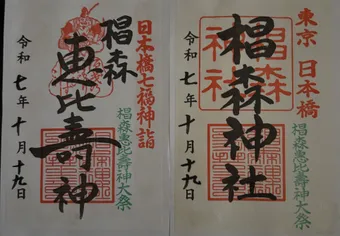 東京 日本橋
椙森神社
椙森恵比壽神大祭
令和七年十月十九日
日本橋七福神詣
椙森
恵比壽神
椙森恵比壽神大祭
令和七年十月十九日